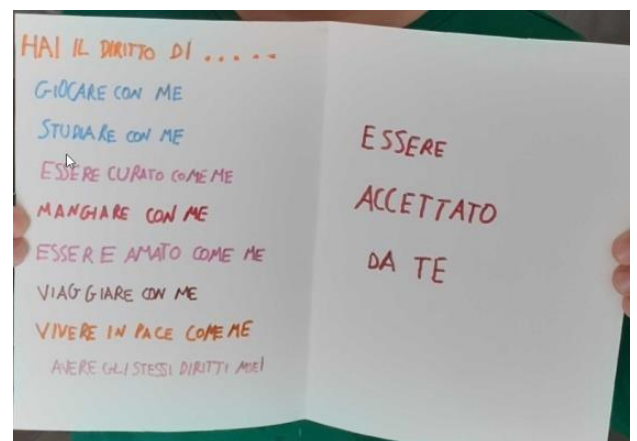 HAI IL DIRITTO DI .....
GIOCARE CON ME
STUDIARE CON ME
ESSERE CURATO COME ME
MANGIARE CON ME
ESSERE AMATO COME ME
VIAGGIARE CON ME
VIVERE IN PACE COME ME
AVERE GLI STESSI DIRITTI MIEI
ESSERE
ACCETTATO
DA TE